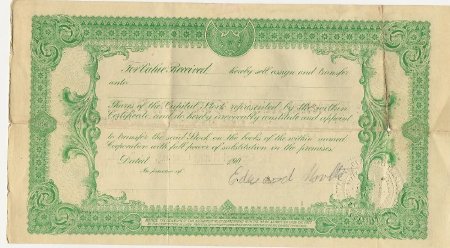 For Value Received hereby sell, assign and transfer
unto
Shares of the Capital Stock represented by the within
Certificate and do hereby irrevocably constitute and appoint
to transfer the said Stock on the books of the within named
Corporation with full power of substitution in the premises.
Dated 190
In presence of
Edward